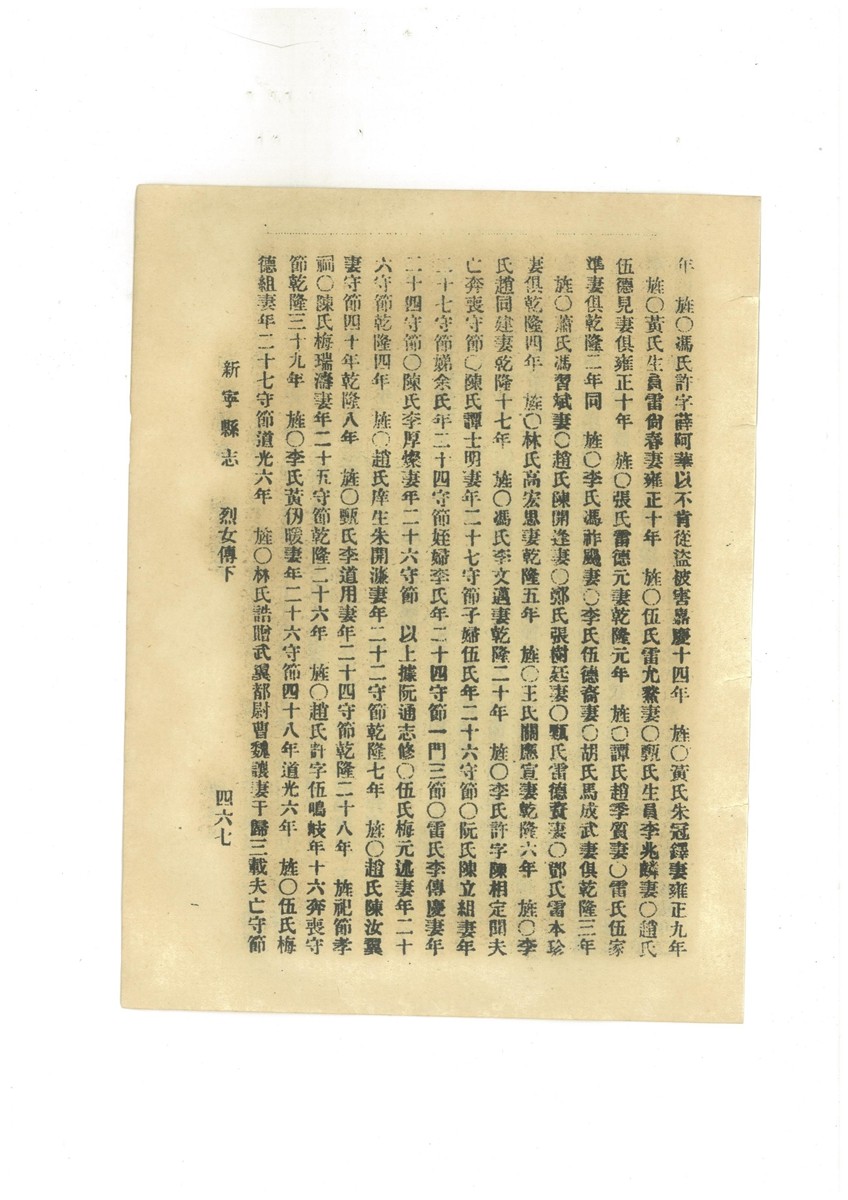 年　旌〇馮氏許字薛阿華以不肯從盜被害嘉慶十四年　旌〇黃氏朱冠鐸妻雍正九年
旌〇黃氏生員雷尙春妻雍正十年　旌〇伍氏雷尤鰲妻〇甄氏生員李兆麟妻〇趙氏
伍德見妻俱雍正十年　旌〇張氏雷德元妻乾隆元年　旌〇譚氏趙季質妻〇雷氏伍家
準妻俱乾隆二年同　旌〇李氏馮祚颺妻〇李氏伍德裔妻〇胡氏馬成武妻俱乾隆三年
旌〇蕭氏馮習斌妻〇趙氏陳開逢妻〇鄭氏張樹廷妻〇甄氏雷德賚妻〇鄧氏雷本珍
妻俱乾隆四年　旌〇林氏高宏思妻乾隆五年　旌〇王氏關應宣妻乾隆六年　旌〇李
氏趙同建妻乾隆十七年　旌〇馮氏李文邁妻乾隆二十年　旌〇李氏許字陳相定聞夫
亡奔喪守節〇陳氏譚士明妻年二十七守節子婦伍氏年二十六守節〇阮氏陳立組妻年
二十七守節娣余氏年二十四守節姪婦李氏年二十四守節一門三節〇雷氏李傳慶妻年
二十四守節〇陳氏李厚燦妻年二十六守節　以上據阮通志修〇伍氏梅元述妻年二十
六守節乾隆四年　旌〇趙氏庠生朱開濂妻年二十二守節乾隆七年　旌〇趙氏陳汝翼
妻守節四十年乾隆八年　旌〇甄氏李道用妻年二十四守節乾隆二十八年　旌祀節孝
祠〇陳氏梅瑞濤妻年二十五守節乾隆二十六年　旌〇趙氏許字伍鳴岐年十六奔喪守
節乾隆三十九年　旌〇李氏黃仍暖妻年二十六守節四十八年道光六年　旌〇伍氏梅
德組妻年二十七守節道光六年　旌〇林氏誥贈武翼都尉曹魏讓妻于歸三載夫亡守節
新寧縣志　烈女傳下　四六七